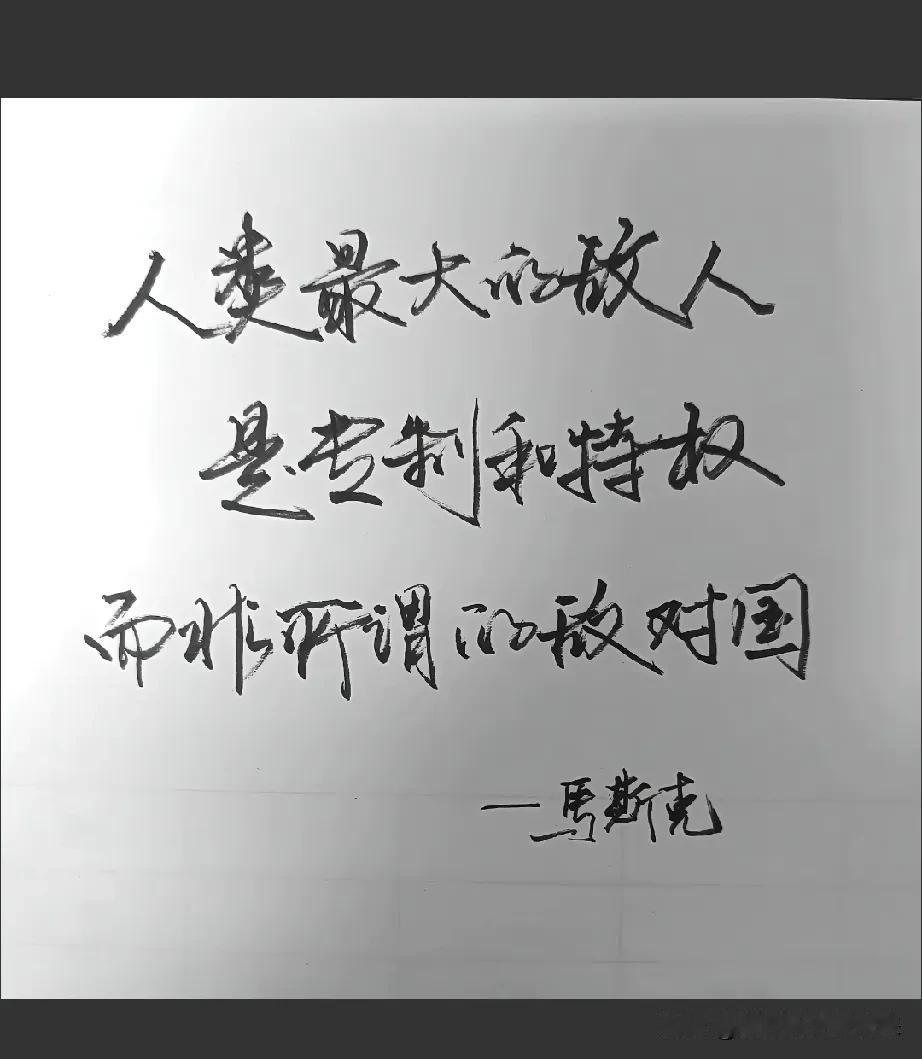 人类最大的敌人
是专制和特权
而非所谓的敌对国
—马斯克